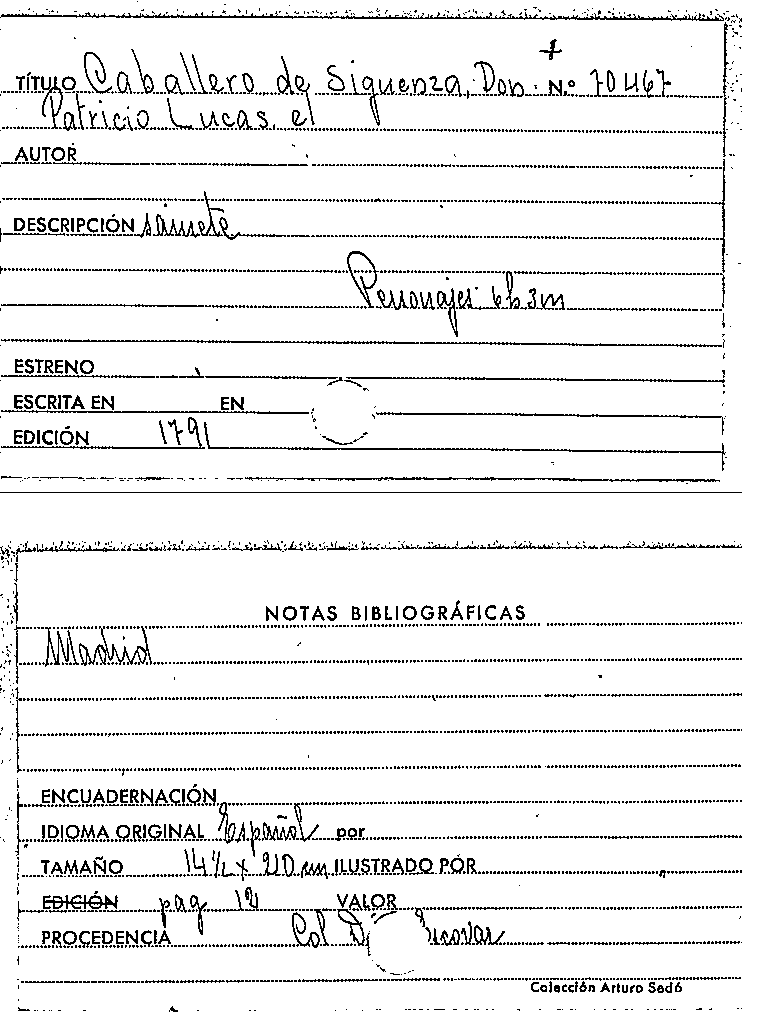 TÍTULO Caballero de Siguenza, Don Nº 70467
Patricio Lucas, el
AUTOR
DESCRIPCIÓN sainete
Personajes 6h 3m
ESTRENO
ESCRITA EN EN
EDICIÓN 1791
NOTAS BIBLIOGRÁFICAS
Madrid
ENCUADERNACIÓN
IDIOMA ORIGINAL Español por
TAMAÑO 14½ x 20 cm ILUSTRADO POR
EDICIÓN pag 12 VALOR
PROCEDENCIA Col
Colección Arturo Sedó